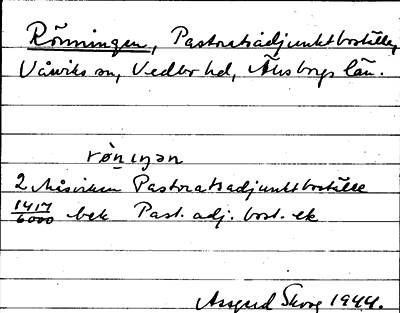 Rönningen, Pastoratsadjunktbostille,
Vårviks sn, Vedbo hd, Älvsborgs län.
rø̀nıŋən
2 Pastoratsadjunktbostille
1417/6000 bek Past. adj. bost. ek
Assgerd Skog 1944.